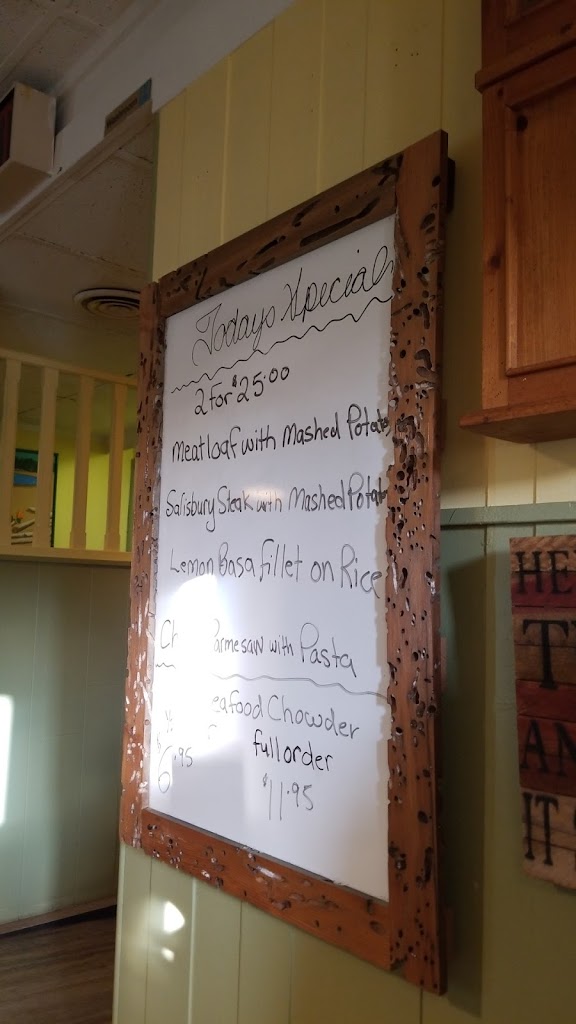 Todays Special
2 For $25.00
Meatloaf with Mashed Potato
Salisbury Steak with Mashed Potato
Lemon Basa fillet on Rice
Parmesan with Pasta
eafood Chowder
$6.95
full order
$11.95
HE
T
AN
IT